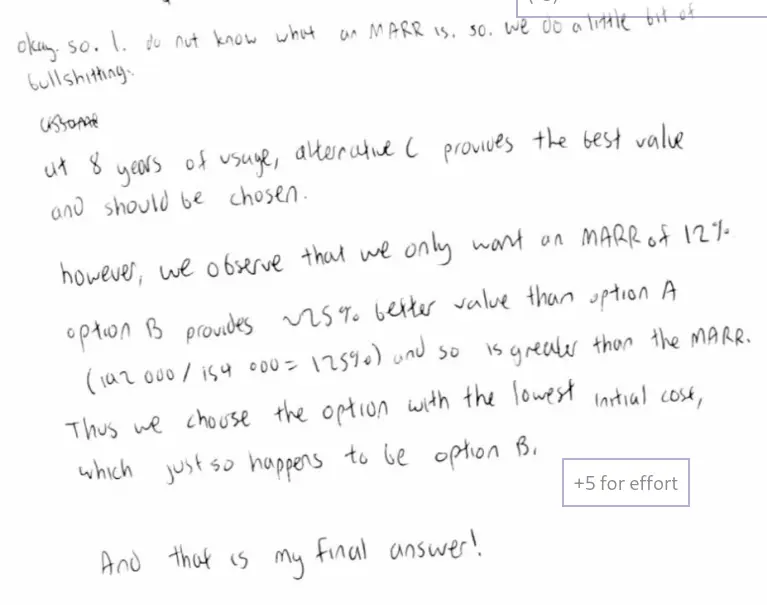 okay. so. I. do not know what an MARR is. so. we do a little bit of
bullshitting.
at 8 years of usage, alternative C provides the best value
and should be chosen.
however, we observe that we only want an MARR of 12%
option B provides ~25% better value than option A
(192 000 / 154 000 = 125%) and so is greater than the MARR.
Thus we choose the option with the lowest initial cost,
which just so happens to be option B.
+5 for effort
And that is my final answer!